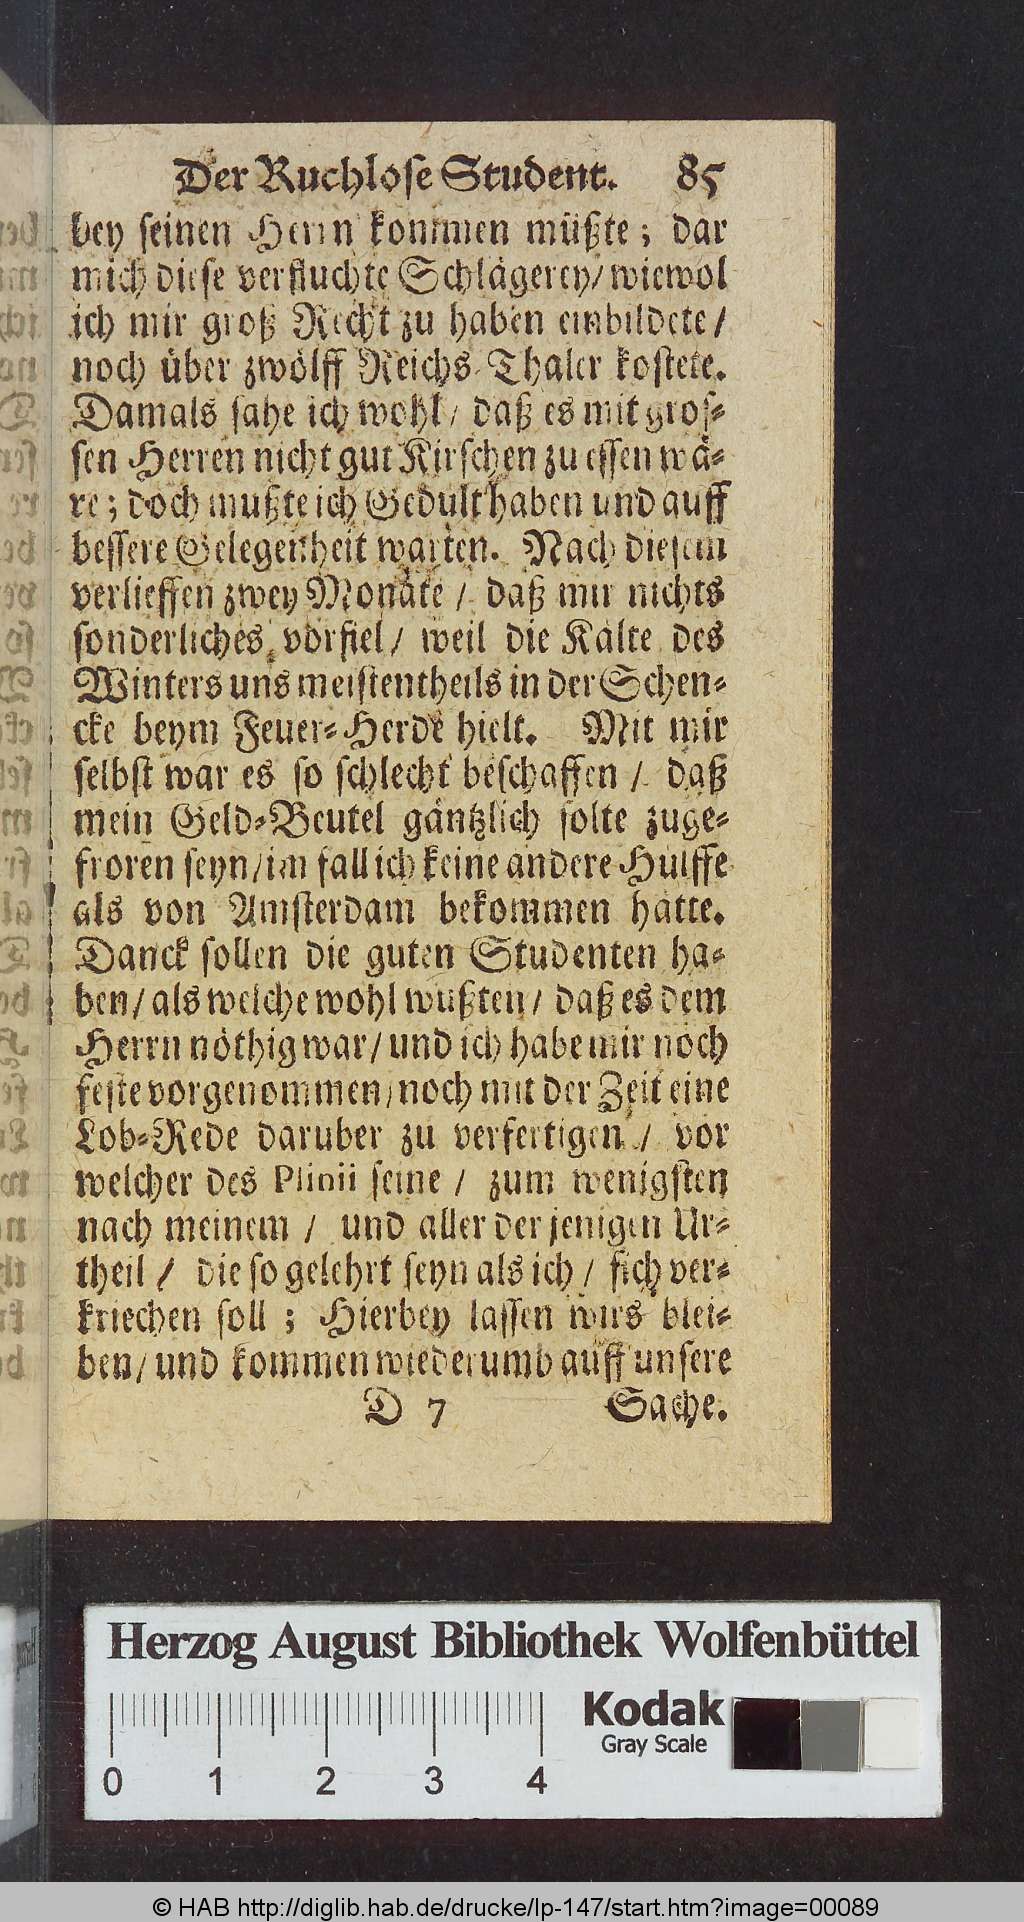 Der Ruchlose Student. 85
bey seinen Herrn kommen müßte; dar
mich diese verfluchte Schlägerey/ wiewol
ich mir groß Recht zu haben einbildete/
noch über zwölff Reichs-Thaler kostete.
Damals sahe ich wohl/ daß es mit gros-
sen Herren nicht gut Kirschen zu essen wä-
re; doch mußte ich Gedult haben und auff
bessere Gelegenheit warten. Nach diesem
verlieffen zwey Monate/ daß mir nichts
sonderliches vorfiel/ weil die Kälte des
Winters uns meistentheils in der Schen-
cke beym Feuer-Herde hielt. Mit mir
selbst war es so schlecht beschaffen/ daß
mein Geld-Beutel gäntzlich solte zuge-
froren seyn/ im fall ich keine andere Hülffe
als von Amsterdam bekommen hätte.
Danck sollen die guten Studenten ha-
ben/ als welche wohl wußten/ daß es dem
Herrn nöthig war/ und ich habe mir noch
feste vorgenommen/ noch mit der Zeit eine
Lob-Rede darüber zu verfertigen/ vor
welcher des Plinii seine/ zum wenigsten
nach meinem/ und aller der jenigen Ur-
theil/ die so gelehrt seyn als ich/ sich ver-
kriechen soll; Hierbey lassen wirs blei-
ben/ und kommen wiederumb auff unsere
D 7 Sache.
Herzog August Bibliothek Wolfenbüttel
Kodak
Gray Scale
0 1 2 3 4
© HAB http://diglib.hab.de/drucke/lp-147/start.htm?image=00089